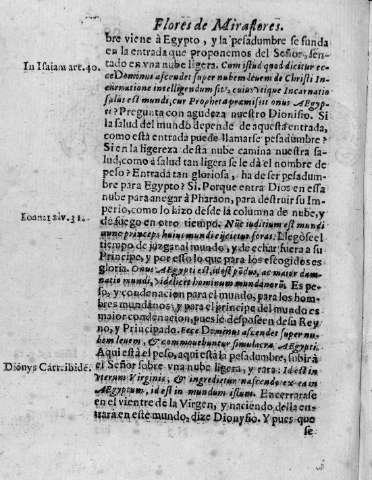 Flores de Miraflores.
bre viene à Egypto, y la pesadumbre se funda
en la entrada que proponemos del Señor, sen-
tado en vna nube ligera. Cum istud quod dicitur ec-
In Isaiam art. 40.
ce Dominus ascendet super nubem leuem de Christi In-
carnatione intelligendum sit, cuius vtique Incarnatio
salus est mundi, cur Propheta præmisit onus Ægyp-
ti? Pregunta con agudeza nuestro Dionisio. Si
la salud del mundo depende de aquesta entrada,
como està entrada puede llamarse pesadumbre?
Si en la ligereza desta nube camina nuestra sa-
lud, como à salud tan ligera se le dà el nombre de
peso? Entrada tan gloriosa, ha de ser pesadum-
bre para Egypto? Si. Porque entra Dios en essa
nube para anegar à Pharaon, para destruir su Im-
perio, como lo hizo desde la columna de nube, y
Ioann: 12. v. 31.
de fuego en otro tiempo. Nũc iuditium est mundi
nunc princeps huius mundi eijcietur foras. Llegòse el
tiempo de juzgar al mundo, y de echar fuera a su
Principe, y por esso lo que para los escogidos es
gloria. Onus Ægypti est, id est põdus, ac maior dam-
natio mundi, videlicet hominum mundanorũ. Es pe-
so, y condenacion para el mundo, para los hom-
bres mundanos, y para el principe del mundo es
maior condenacion, pues le despoſeen de su Rey-
no, y Principado. Ecce Dominus ascendet super nu-
bem leuem, & commouebuntur simulacra Ægypti.
Aqui està el peso, aqui està la pesadumbre, subirà
Dionys Cart. ibidé.
el Señor sobre vna nube ligera, y rara: Id est in
vterum Virginis, & ingredietur nascendo ex ea in
Ægyptum, id est in mundum istum. Encerrarase
en el vientre de la Virgen, y naciendo della en-
trarà en este mundo, dize Dionysio. Y pues que
se